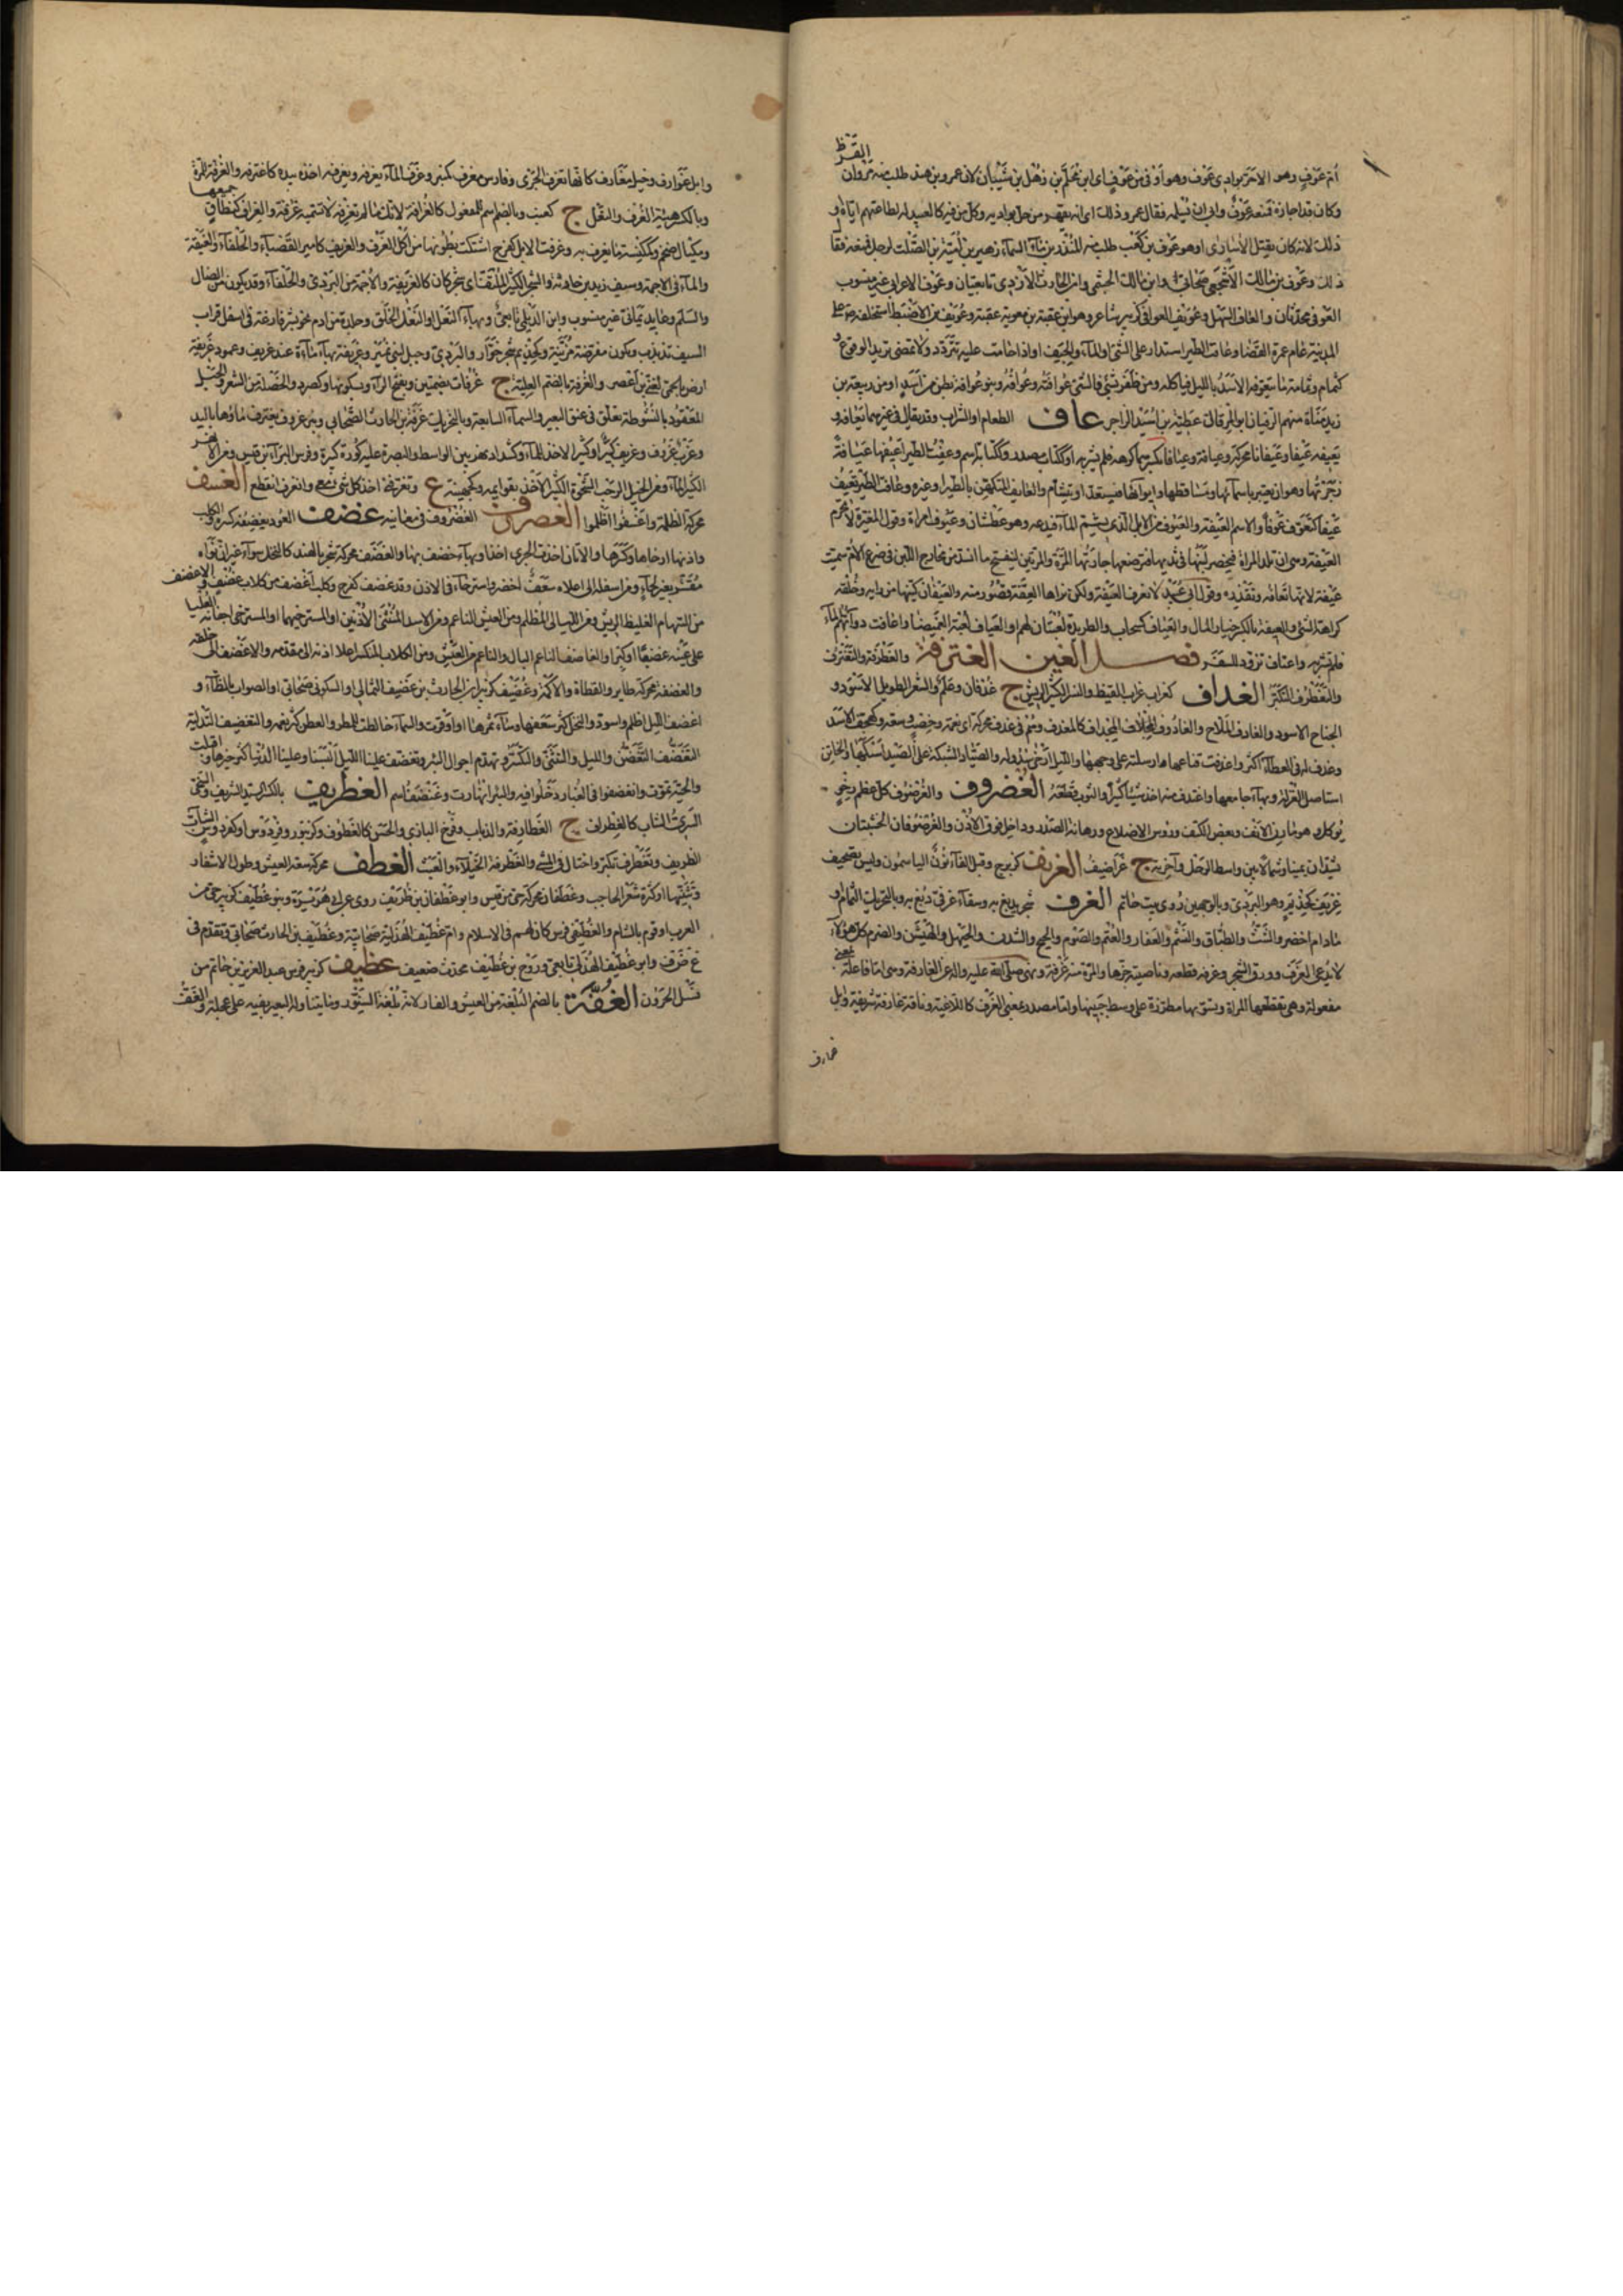 القرظ
أم عوف وهو لا حر بوادى عوف وهو أوفى من عوف اى ابن محلم بن ذهل بن شيبان لان عمرو بن هند طلب منه مروان
وكان قد اجاره فمنعه عوف وابى ان يسلمه فقال عمرو ذلك اى انه يقهر من حل بواديه وكل من فيه كالعبيد له لطاعتهم اياه او
ذلك لانه كان يقتل الأسارى او هو عوف بن كعب طلب منه المنذر بن ماء السماء زهير بن أمية بن الصلت لدخل فمنعه فقال
ذلك وعوف بن مالك الأشجعى صحابى وابن مالك الجشمى وابن الحارث الأزدى تابعيان وعوف الاعرابى غير منسوب
العوفى محدثان والعاف السهل وعويف القوافى كزبير شاعر وهو ابن عقبة بن معوية عقبة وعويف بن الاضبط استخلفه على
المدينة عام عمرة القضاء وعافت الطير استدار على الشئ او الماء والجيف او اذا حامت عليه تتردد ولا تمضى تريد الوقوع
كثمام وثمامة ما يتعوفه الاسد بالليل فياكله ومن ظفر بشئ فالشئ عوافته وعوافه وبنو عوافة بطن من اسد او من ربيعة بن
زيد مناة منهم الزفيان ابو المرقال عطية بن اسيد الراجز عاف الطعام او الشراب وقد يقال فى غيرهما يعافه و
يعيفه عيفا وعيفانا محركة وعيافة وعيافا بكسرهما كرهه فلم يشربه او ككتاب مصدر وككتابة اسم وعفت الطير اعيفها عيافة
زجرتها وهو ان يعتبر باسمائها ومساقطها واصواتها فيتسعد او يتشأم والعائف المتكهن بالطير او غيره وعافت الطير تعيف
عيفا كتعوف عوفا والاسم العيفة والعيوف من الابل الذى يشم الماء فيدعه وهو عطشان وعيوف امراة وقول المغيرة لا تحرم
العيفة هى ان تلد المراة فيحصر لبنها فى ثديها فترضعها جارتها المرة والمرتين لينفتح ما انسد من مخارج اللبن فى ضرع الام سميت
عيفة لانها تعافه وتقذره وقول ابى عبيد لا نعرف العيفة ولكن نراها العفة قصور منه والعيفان كتيهان من دابه وخلقه
كراهة الشئ والعيفة بالكسر خيار المال والعياف كسحاب والطريدة لعبتان لهم او العياف لعبة الغميصا واعافت دوابهم الماء
فلم تشربه واعتاف تزود للسفر فصل الغين الغترفة والغطرفة والتغترف
والتغطرف التكبر الغداف كغراب غراب القيظ والنسر الكثير الريش ج غدفان وعلم والشعر الطويل الاسود و
الجناح الاسود والغادف الملاح والغادوف المجداف كالمغدف وهم فى غدف محركة اى نعمة وخصب وسعة وكهجف الاسد
وغدف له فى العطاء اكثر واغدفت قناعها ارسلته على وجهها والليل ارخى سدوله والصياد الشبكة على الصيد اسبلها والخاتن
استاصل الغرلة وبها جامعها واغتدف منه اخذ شيئا كثيرا والثوب قطعه الغضروف والغرضوف كل عظم رخص
يوكل وهو مارن الانف وبعض الكتف ورؤس الاضلاع ورهابة الصدر وداخل فوق الأذن والغرضوفان الخشبتان
تشدان يمينا وشمالا بين واسط الرحل وآخرته ج غراضيف الغرنف كزبرج وقبل الفاء نون الياسمون وليس بتصحيف
غريف كحذيم وهو البردى وبالوجهين روى بيت حاتم الغرف شجر يدبغ به وسقاء غرفى دبغ به وبالتحريك الثمام او
مادام اخضر والشث والطباق والنشم والعفار والعتم والصوم والحبج والشدن والحيهل والهيشر والضرم كل هؤلاء
لا يدعى الغرف وورق الشجر وغرفه قطعه وناصيته جزها والمرة منه غرفة ونهى صلى الله عليه عن الغارفة وهى اما فاعلة بمعنى
مفعولة وهى تقطعها المراة وتسويها مطززة على وسط جبينها واما مصدر بمعنى الغرف كاللاغية وناقة غارفة سريعة وابل
غوارف
وابل غوارف وخيل مغارف كانها تغرف الجرى وفارس مغرف كمنبر وغرف الماء يغرفه ويغرفه اخذه بيده كاغترفه والغرفة المرة
وبالكسر هيئة الغرف والنعل ج كعنب وبالضم اسم للمفعول كالغرافة لانك ما لم تغرفه لا تسميه غرفة والغراف كنطاق جمعها
ومكيال ضخم وكمكنسة ما يغرف به وغرفت الابل كفرح اشتكت بطونها من اكل الغرف والغريف كامير القصباء والحلفاء والغيفة
والماء فى الاجمة وسيف زيد بن حارثة والشجر الكثير الملتف اى شجر كان كالغريفة والاجمة من البردى والحلفاء وقد يكون من الضال
والسلم وعابد يمانى غير منسوب وابن الديلى تابعى وبهاء النعل او النعل الخلق وجلدة من ادم نحو شبر فارغة فى اسفل قراب
السيف تذبذب وتكون مفرضة مزينة وكحذيم شجر خوار والبردى وجبل لبنى نمير وغريفة بهاء ماءة عند غريف وعمود غريفة
ارض بالحمى لغنى بن اعصر والغرفة بالضم العلية ج غرفات بضمتين وبفتح الراء وبسكونها وكصرد والخصلة من الشعر والحبل
المعقود بانشوطة يعلق فى عنق البعير والسماء السابعة وبالتحريك غرفة بن الحارث الصحابى وبئر غروف يغترف ماؤها باليد
وغرب غروف وغريف كبير او كثير الاخذ للماء وكشداد نهر بين الواسط والبصرة عليه كورة كبيرة وفرس البراء بن قيس ومن الانهر
الكثير الماء ومن الخيل الرحب الشحوة الكثير الاخذ بقوائمه وكجهينة ع وتغرفنى اخذ كل شئ معى وانغرف انقطع الغسف
محركة الظلمة واغسفوا اظلموا الغضروف الغضروف فى معانيه غضف العود يغضفه كسره والكلب
واذنها ارخاها وكسرها والاتان اخذت الجرى اخذا وبهاء خضف بها والغضف محركة شجر بالهند كالنخل سواء غير ان نواه
مقشر بغير لحاء ومن اسفله الى اعلاه سعف اخضر واسترخاء فى الاذن وقد غضف كفرح وكلب اغضف من كلاب غضف والاغضف
من السهام الغليظ الريش ومن الليالى المظلم ومن العيش الناعم ومن الاسد المنثنى الاذنين او المسترخيهما او المسترخى اجفانه العليا
على عينه غضبا او كبرا والغاضف الناعم البال والناعم من العيش ومن الكلاب المنكسر اعلا اذنه الى مقدمه والاغضف الى خلفه
والغضفة محركة طاير او القطاة والاكمة وغضيف كزبير ابن الحارث بن غضيف الثمالى او السكونى صحابى او الصواب بالطاء و
اغضف الليل اظلم واسود والنخل كثر سعفها وساء ثمرها او اوقرت والسماء خالطت للمطر والعطن كثر نعمه والتغضيف التدلية
التغضف التغضن والليل والتثنى والتكسر وتهدم اجوال البئر وتغضف علينا الليل البسنا وعلينا الدنيا كثر خيرها واقبلت
والحية تلوت وانغضفوا فى الغبار دخلوا فيه والبئر انهارت وغنضف اسم الغطريف بالكسر السيد الشريف والسخى
السرى الشاب كالغطراف ج الغطارفة والذباب وفرخ البازى والحسن كالغطروف وكزنبور وفردوس او كفردوس الشاب
الظريف وتغطرف تكبر واختال فى المشى والغطرفة الخيلاء والعبث الغطف محركة سعة العيش وطول الاشفار
وتثنيها او كثرة شعر الحاجب وغطفان محركة حى من قيس وابو غطفان بن طريف روى عن ابى هريرة وبنو غطيف كزبير حى من
العرب او قوم بالشام والغطيفى فرس كان لهم فى الاسلام وام غطيف الهذلية صحابية وغطيف بن الحارث صحابى تقدم فى
غ ض ف وابو غطيف الهذلى تابعى وروح بن غطيف محدث ضعيف غظيف كزبير فرس عبد العزيز بن حاتم من
نسل الحرون الغفة بالضم البلغة من العيش والفار لانه بلغة السنور وما يتناوله البعير بفيه على عجلة والغف